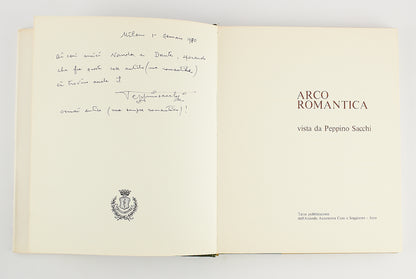 Milano 1° Gennaio 1980
Ai cari amici Nanda e Dante, sperando
che fra quest cose antiche (ma romantiche)
ci trovino anche
Peppino Sacchi
(ma sempre romantico)!
ARCO
ROMANTICA
vista da Peppino Sacchi
Terza pubblicazione
dell'Azienda Autonoma Cura e Soggiorno - Arco